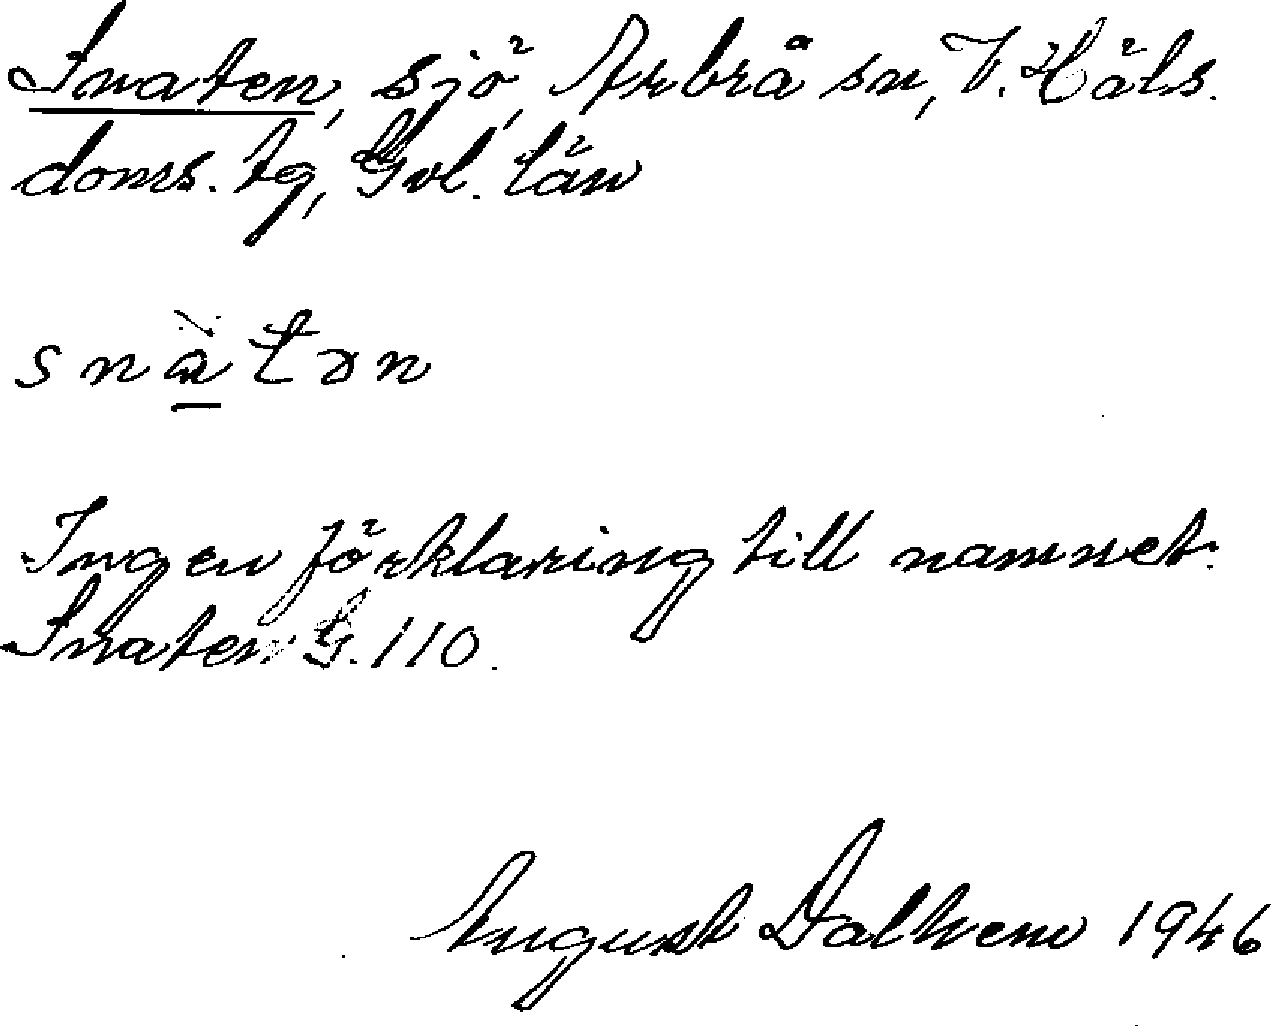 Snaten, sjö, Arbrå sn, V. Häls.
doms. tg, Gvl. län
snàtən
Ingen förklaring till namnet.
Snaten G. 110.
August 1946